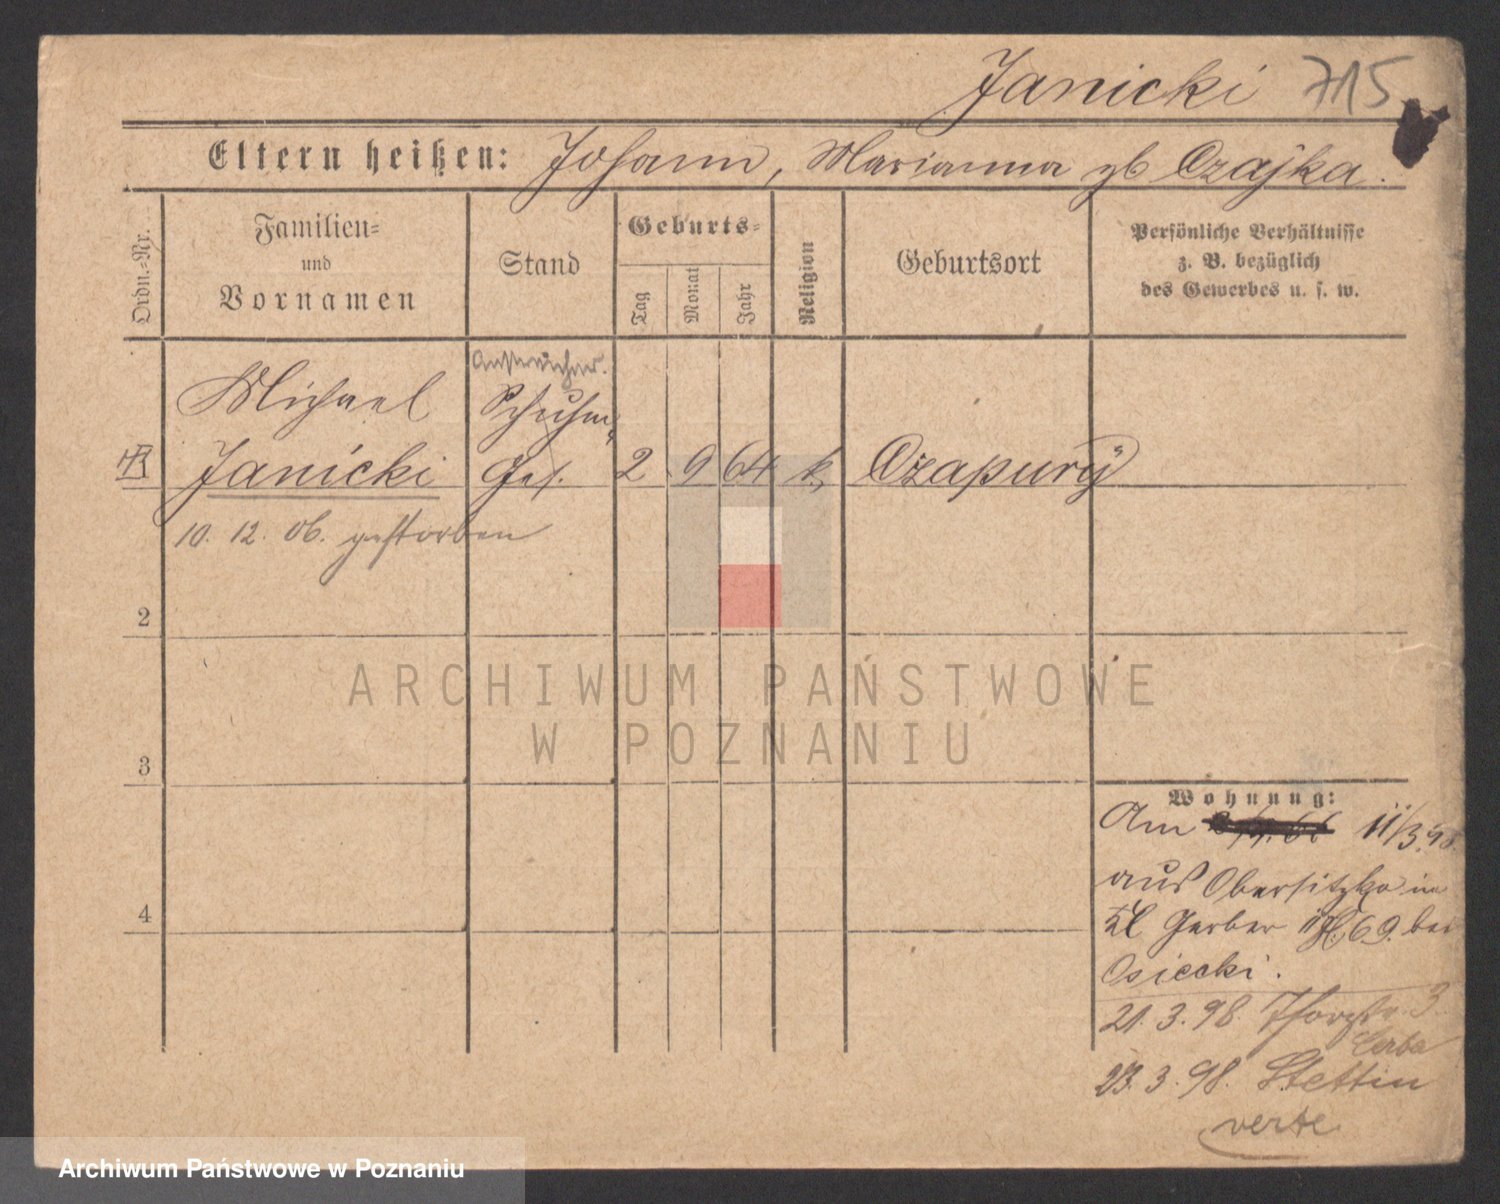 Janicki 715
Eltern heißen: Johann, Marianna gb Czajka.
Ordn.-Nr.
Familien-
und
Vornamen
Stand
Geburts-
Tag
Monat
Jahr
Religion
Geburtsort
Persönliche Verhältnisse
z. B. bezüglich
des Gewerbes u. s. w.
Anstreicher.
Michael Schuhm
Janicki Ges. 2 9 64 k Czapury
10. 12. 06. gestorben
2
3
4
Wohnung:
Am 11/3.98.
aus Obersitzko in
Kl Gerber 69. bei
Osiecki.
21.3.98. Thorstr. 3
Zerba
23.3.98. Stettin
verte
ARCHIWUM PAŃSTWOWE
W POZNANIU
Archiwum Państwowe w Poznaniu